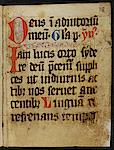 Deus in adiutoriū
meū. Gla p. ym̄
Iam lucis orto syde
re deū p̄cem̄ suplic
ces ut in diurnis ac
tib; nos seruet a no
centib; Lingua re
frenans temper